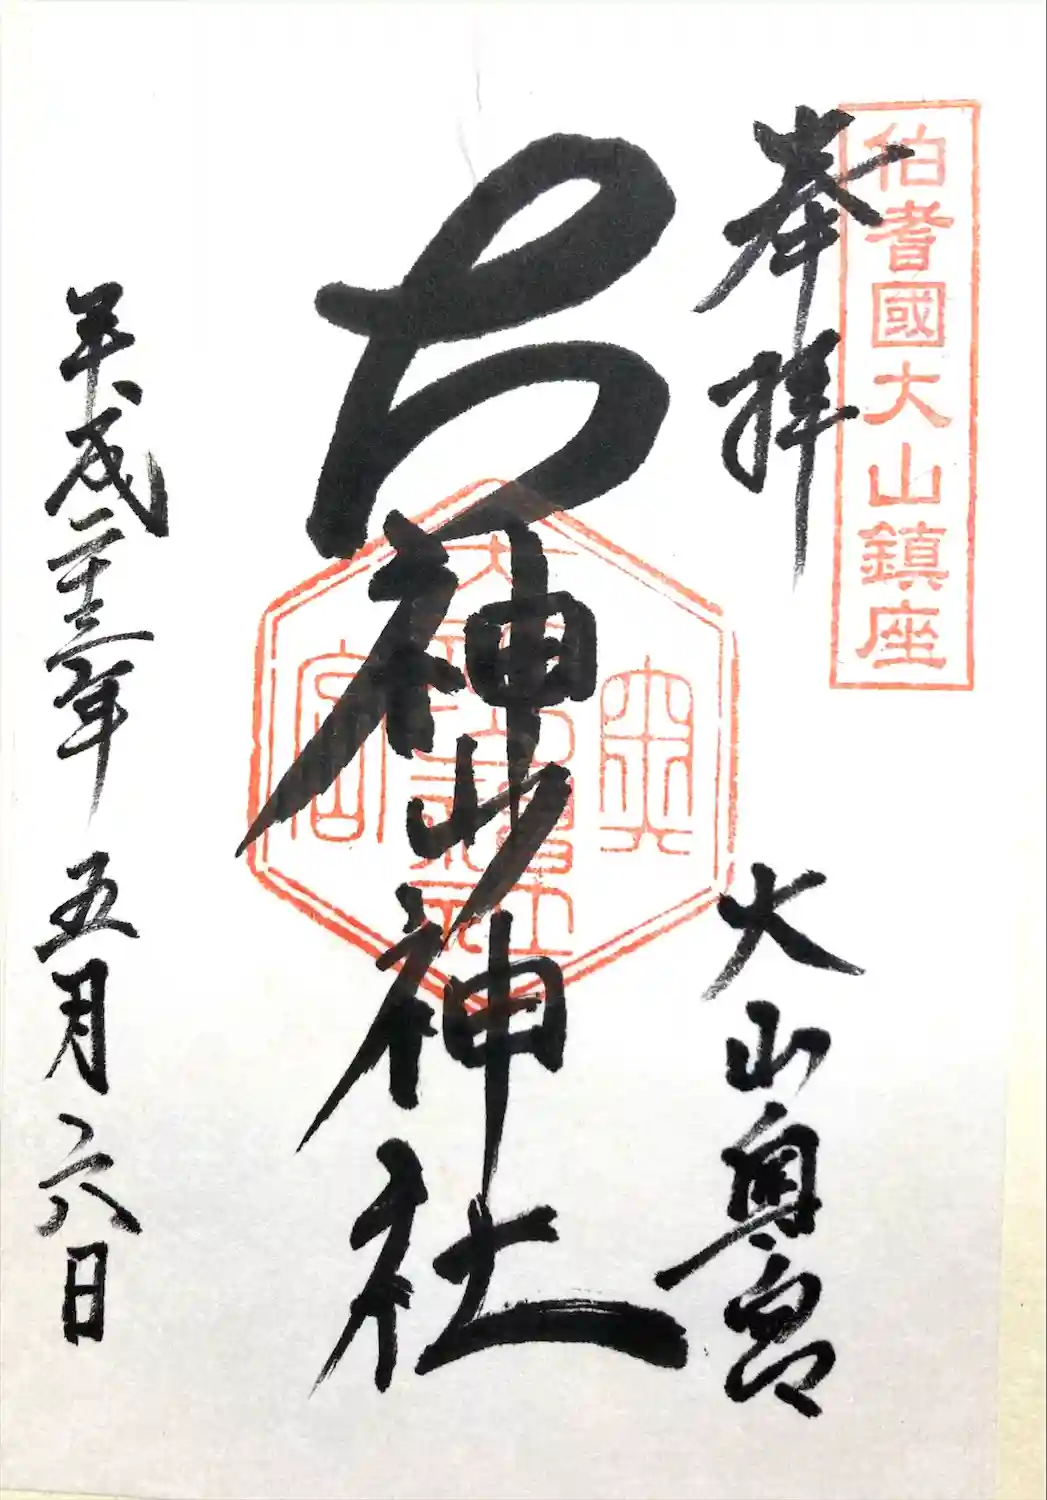 伯耆國大山鎮座
奉拝
大山奥宮
大神山神社
奥
宮
平成二十三年五月六日